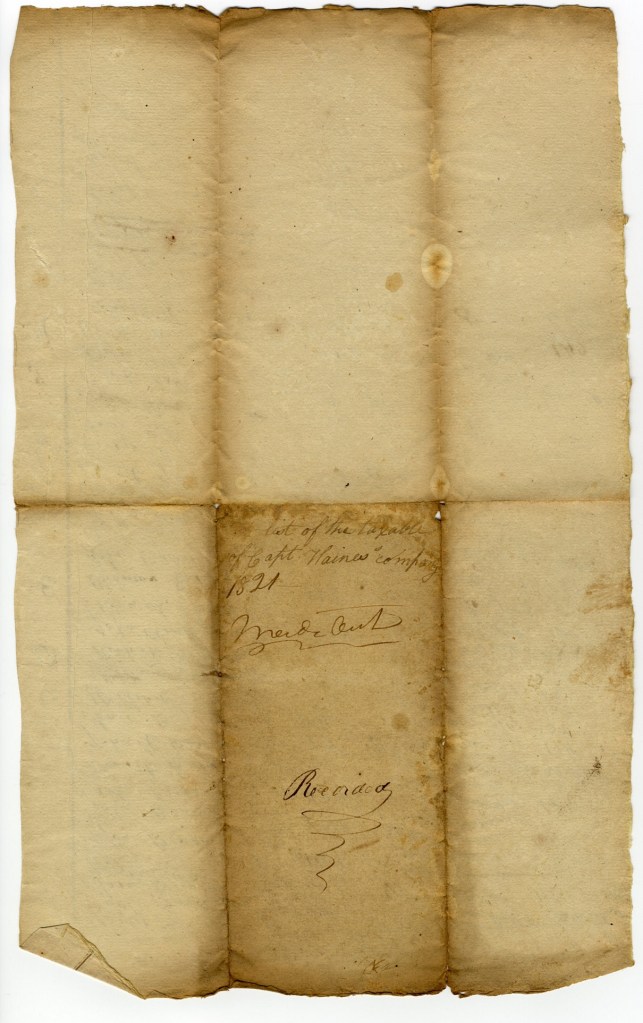 list of the taxable
of Capt Haines company
1821
Made Out
Recorded